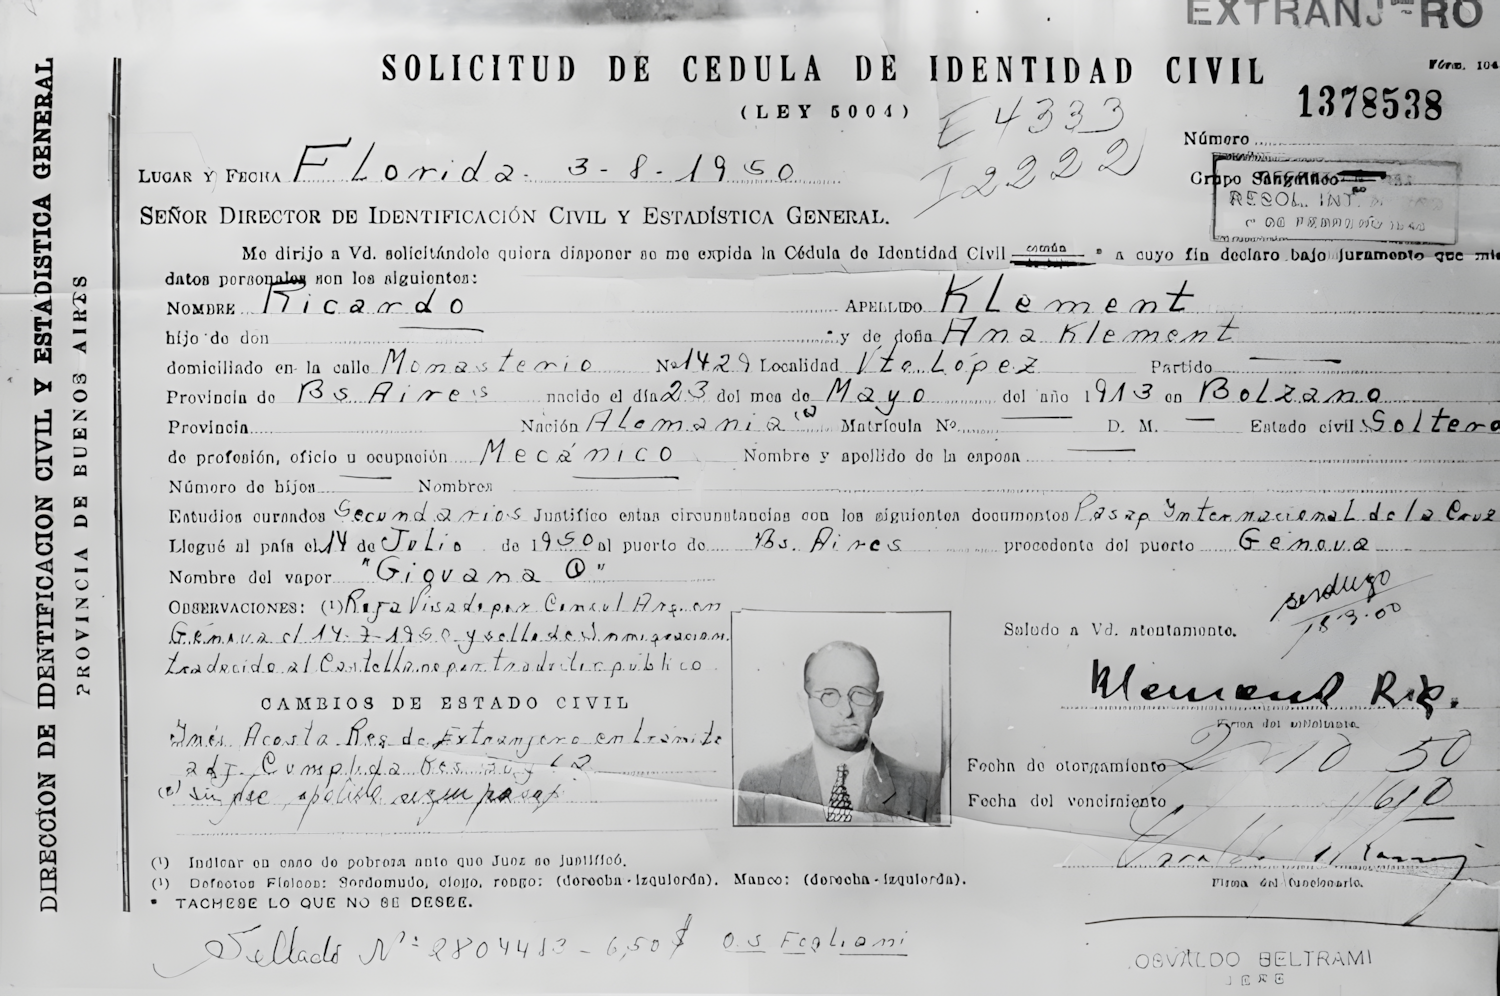 EXTRANJERO
SOLICITUD DE CEDULA DE IDENTIDAD CIVIL
Fórm. 104
(LEY 5004)
1378538
E 4333
I 2222
Número
Grupo Sanguíneo
RESOL. INT.
LUGAR Y FECHA Florida. 3-8-1950
SEÑOR DIRECTOR DE IDENTIFICACIÓN CIVIL Y ESTADÍSTICA GENERAL.
Me dirijo a Vd. solicitándole quiera disponer se me expida la Cédula de Identidad Civil común * a cuyo fin declaro bajo juramento que mis
datos personales son los siguientes:
NOMBRE Ricardo APELLIDO Klement
hijo de don y de doña Ana Klement
domiciliado en la calle Monasterio Nº 1429 Localidad Vte. López Partido
Provincia de Bs Aires nacido el día 23 del mes de Mayo del año 1913 en Bolzano
Provincia Nación Alemania (2) Matrícula Nº. D. M. Estado civil Soltero
de profesión, oficio u ocupación Mecánico Nombre y apellido de la esposa
Número de hijos Nombres
Estudios cursados Secundarios Justifico estas circunstancias con los siguientes documentos Pasap Internacional de la Cruz
Llegué al país el 14 de Julio de 1950 al puerto de Bs. Aires procedente del puerto Génova
Nombre del vapor "Giovana (1)"
OBSERVACIONES: (1) Roja Visado por Consul Arg. en
Génova el 14-7-1950 y sello de Inmigracion.
traducido al Castellano por traductor público
Saludo a Vd. atentamente.
18-9-00
Klement Ric.
Firma del solicitante.
CAMBIOS DE ESTADO CIVIL
Inés Acosta Reg. de Extranjero en trámite
adj. Cumplida Res
(2) sin según pasap
Fecha de otorgamiento 2 10 50
Fecha del vencimiento
Firma del funcionario.
(1) Indicar en caso de pobreza ante que Juez se justificó.
(1) Defectos Físicos: Sordomudo, ciego, rengo: (derecha - izquierda). Manco: (derecha - izquierda).
* TACHESE LO QUE NO SE DESEE.
Sellado Nº 2804413 - 6,50 $ O.S Fogliani
OSVALDO BELTRAMI
JEFE
DIRECCÍON DE IDENTIFICACION CIVIL Y ESTADISTICA GENERAL
PROVINCIA DE BUENOS AIRES